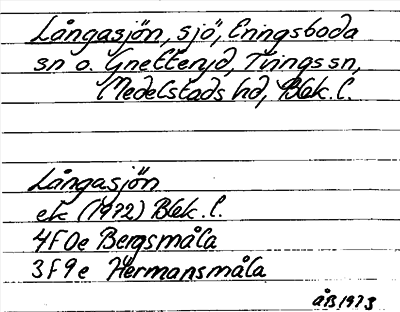 Långasjön, sjö, Enngsboda
sn o. Gnetteryd, Tvings sn,
Medelstads hd, Blek. l.
Långasjön
ek (1972) Blek. l.
4F0e Bergsmåla
3F9e Hermansmåla
åB 1973